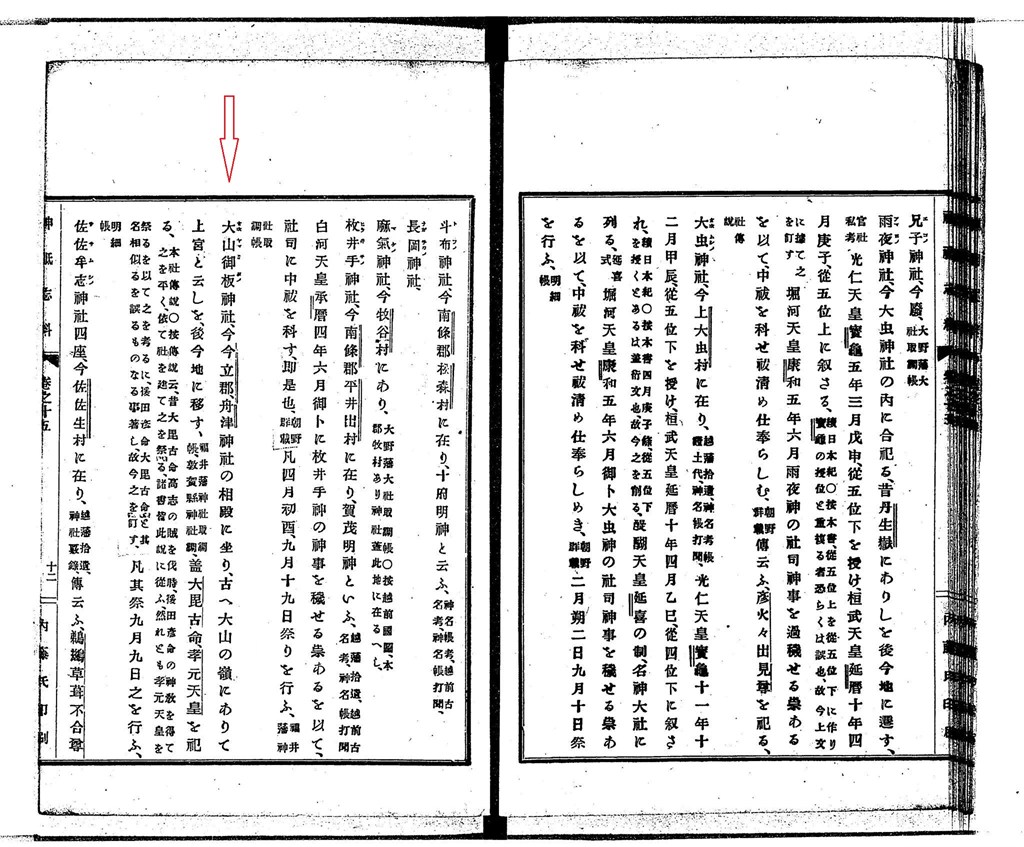 兄子神社、今廢、大野藩大社取調帳
雨夜神社、今大虫神社の內に合祀る、昔丹生嶽にありしを後今地に遷す、
官社私考光仁天皇寶龜五年三月戊申、從五位下を授け桓武天皇延曆十年四
月庚子、從五位上に叙さる、續日本紀〇按本書、從五位上を從五位下に作り寶龜の授位と重複る者恐らくは誤也、故今上文
に據て之を訂す堀河天皇康和五年六月雨夜神の社司神事を過穢せる祟ある
を以て中祓を科せ祓清め仕奉らしむ、朝野群載傳云ふ、彥火々出見尊を祀る、
社傳說
大虫神社、今上大虫村に在り、越藩拾遺、神名考、神名帳打聞、光仁天皇寶龜十一年十
二月甲辰、從五位下を授け、桓武天皇延曆十年四月乙巳、從四位下に叙さ
れ、續日本紀〇按本書四月庚子條、從五位下を授くとあるは蓋衍文也、故今之を削る、醍醐天皇延喜の制、名神大社に
列る、延喜式堀河天皇康和五年六月御卜大虫神の社司神事を穢せる祟あ
るを以て、中祓を科せ祓清め仕奉らしめき、朝野群載二月朔二日九月十日祭
を行ふ、明細帳
斗布神社、今南條郡松森村に在り、十府明神と云ふ、神名帳考、越前古名考、神名帳打聞、
長岡神社、
麻氣神社、今牧谷村にあり、大野藩大社取調帳〇按越前國圖、本郡牧村あり神社蓋此地に在るへし、
枚井手神社、今南條郡平井出村に在り、賀茂明神といふ、越藩拾遺、越前古名考、神名帳打聞
白河天皇承曆四年六月御卜に枚井手神の神事を穢せる祟あるを以て、
社司に中祓を科す、卽是也、朝野群載凡四月初酉、九月十九日祭りを行ふ、福井藩神
社取調帳
大山御板神社、今今立郡、舟津神社の相殿に坐り、古へ大山の嶺にありて
上宮と云しを、後今地に移す、福井藩神社取調帳、敦賀縣神社調、蓋大毘古命、孝元天皇を祀
る、本社傳說〇按傳說云、昔大毘古命高志の賊を伐時、猿田彥命の神敎を得て之を平く、依て社を建て之を祭る、諸書皆此說に從ふ然れとも孝元天皇を
祭るを以て之を考るに、猿田彥命大毘古命と其名相似るを誤るものなる事著し故今之を訂す、凡其祭九月九日之を行ふ、
明細帳
佐佐牟志神社四座、今佐佐生村に在り、越藩拾遺、神社覈錄、傳云ふ、鵜鷀草葺不合尊
神祇志料
卷之十五
十二
內藤氏印刷